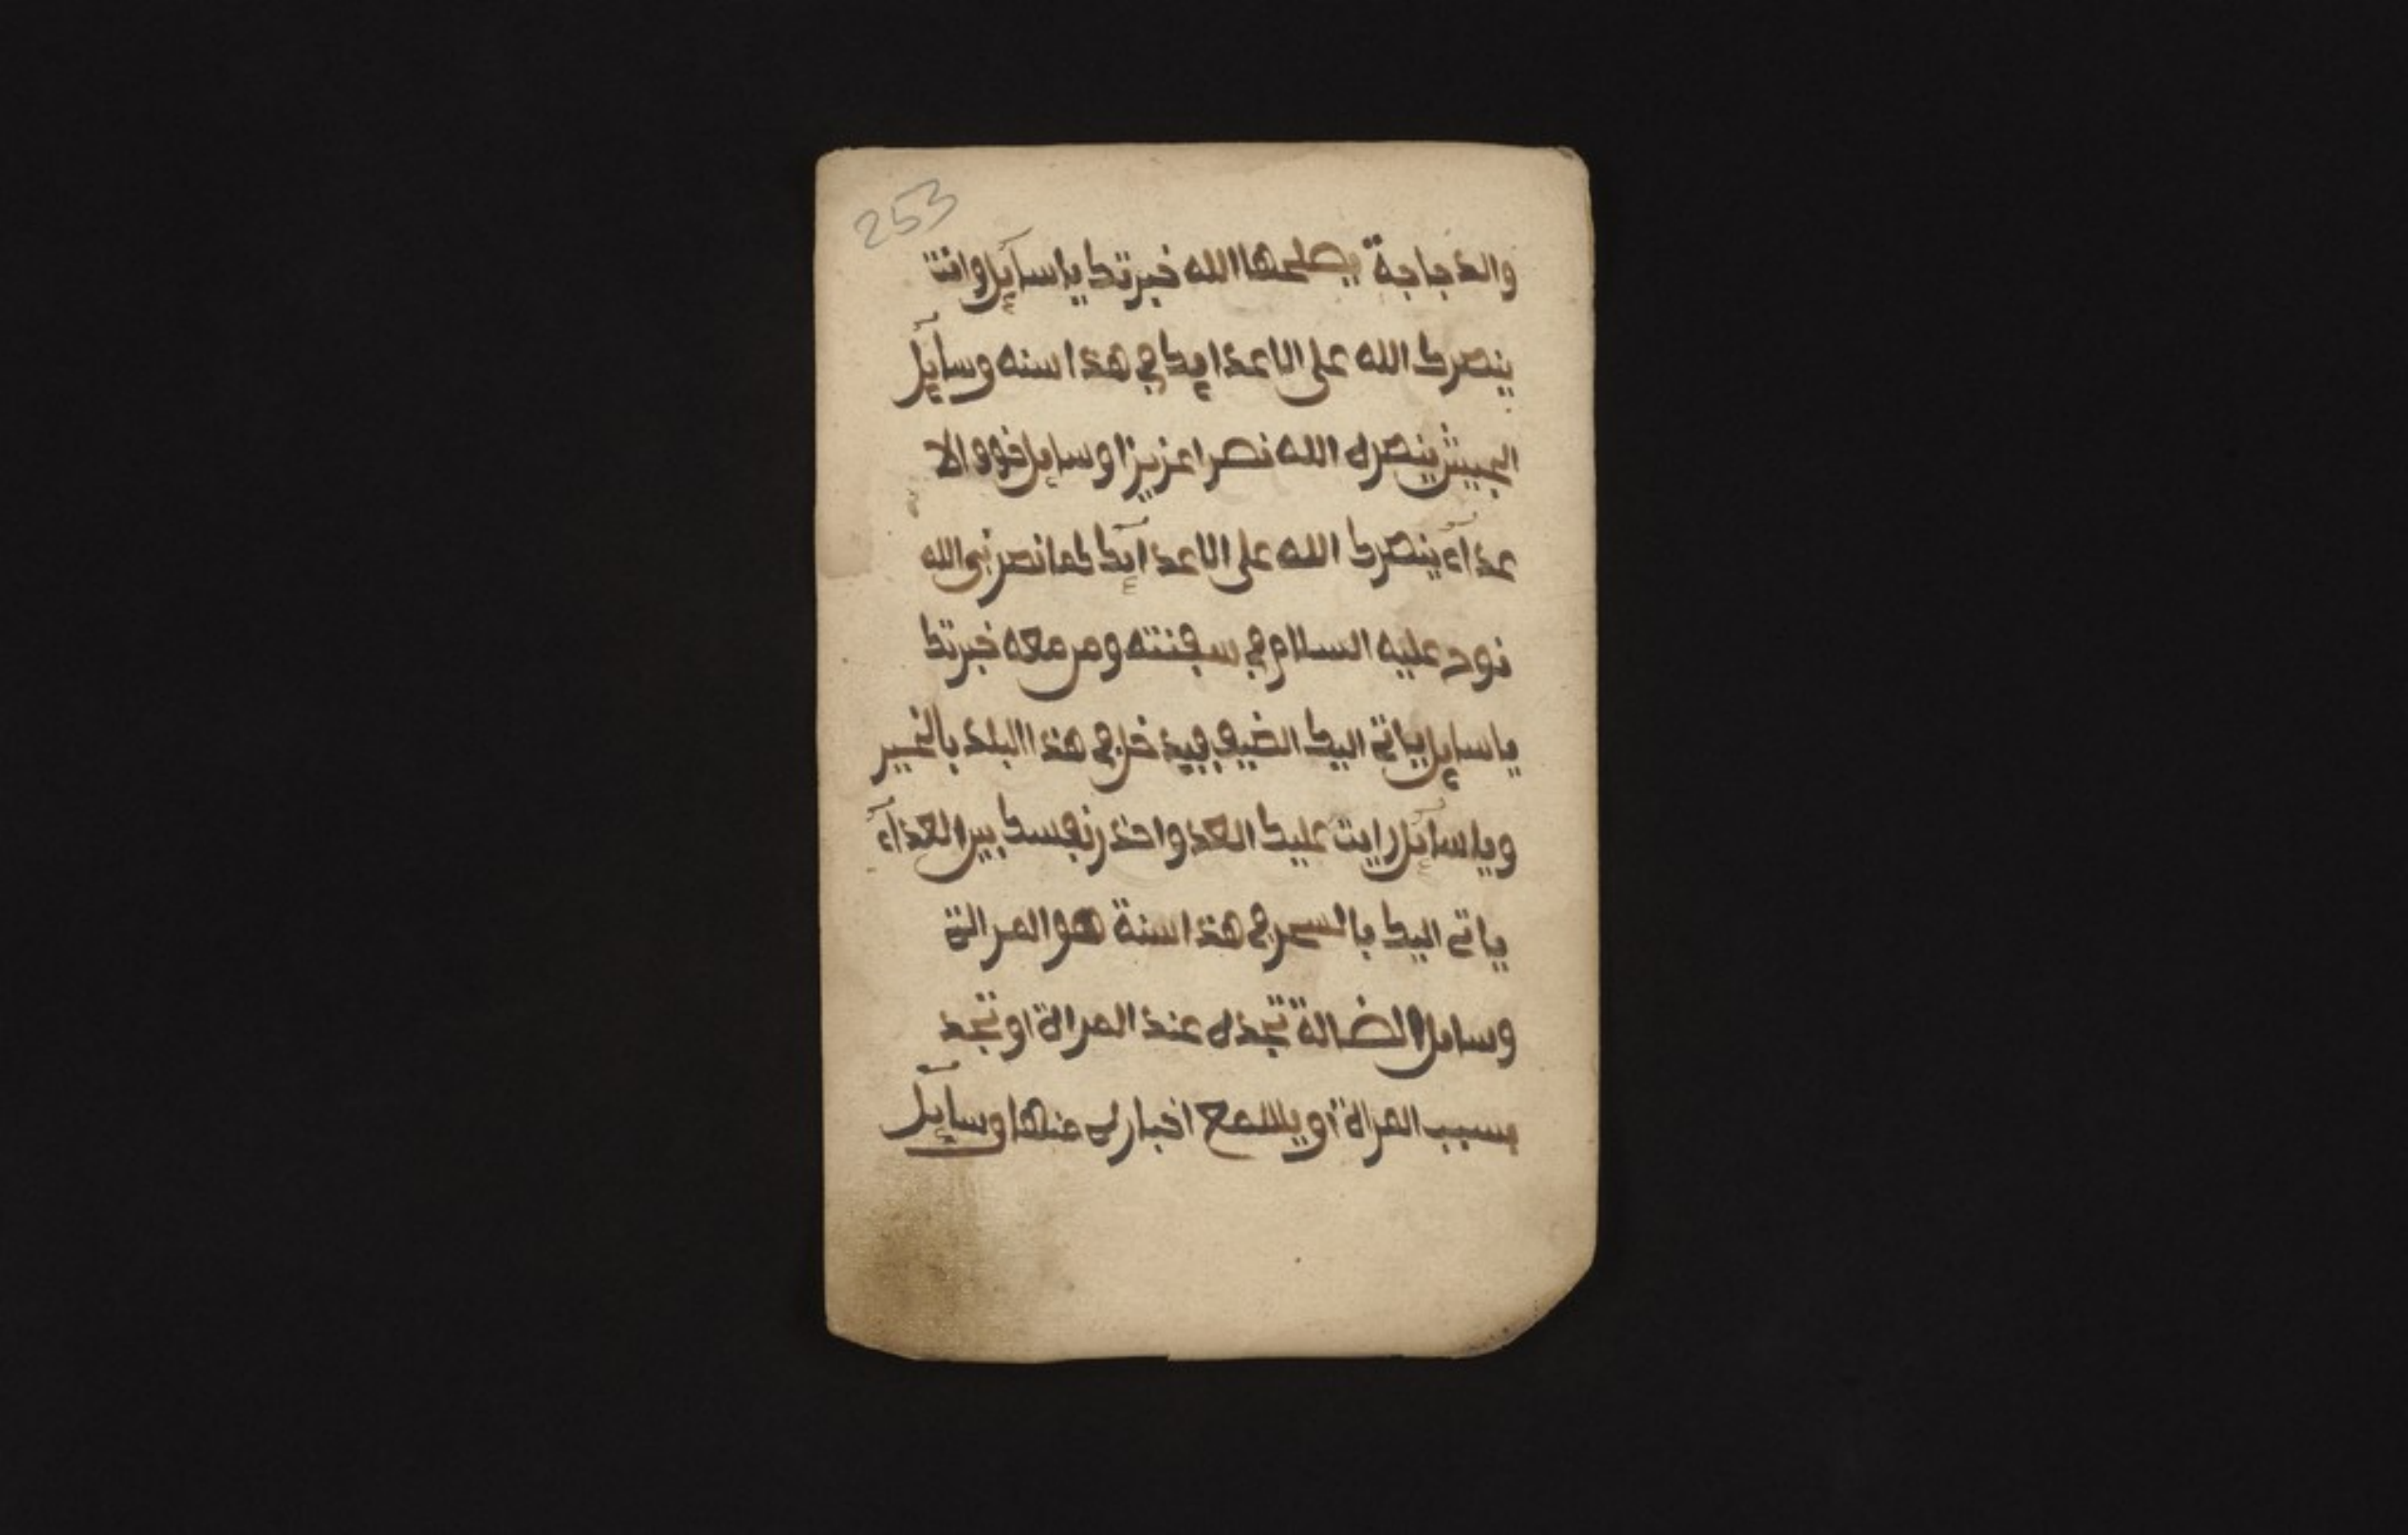 253
والدجاجة يصلحها الله خبرتك يا سآئل وانت
ينصرك الله على الاعدايك في هذا سنه وسآئل
الجيش ينصره الله نصرا عزيزا وسايل فوو الا
عدآء ينصرك الله على الاعدآئك كما نصر نبي الله
نوح عليه السلام في سفنته ومن معه خبرتك
يا سايل ياتي اليك الضيف فيد خل في هذا البلد بالخير
ويا سآئل رايت عليك العد واحذر نفسك بين العدآء
ياتي اليك بالسحر في هذا سنة هو المراة
وسايل الضالة تجده عند المراة او تجد
بسبب المراة او يسمع اخباره عنها وسآئل